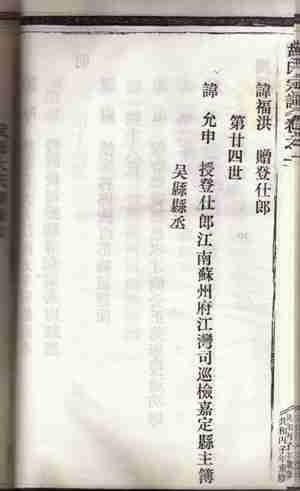 諱福洪　贈登仕郎
第廿四世
諱　允申　授登仕郎江南蘇州府江灣司巡檢嘉定縣主簿
吴縣縣丞
共和丙子年重修